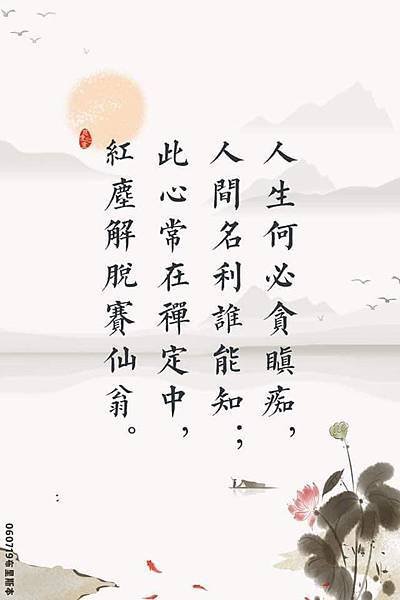 人生何必貪瞋痴，
人間名利誰能知；
此心常在禪定中，
紅塵解脫賽仙翁。
060719布里斯本